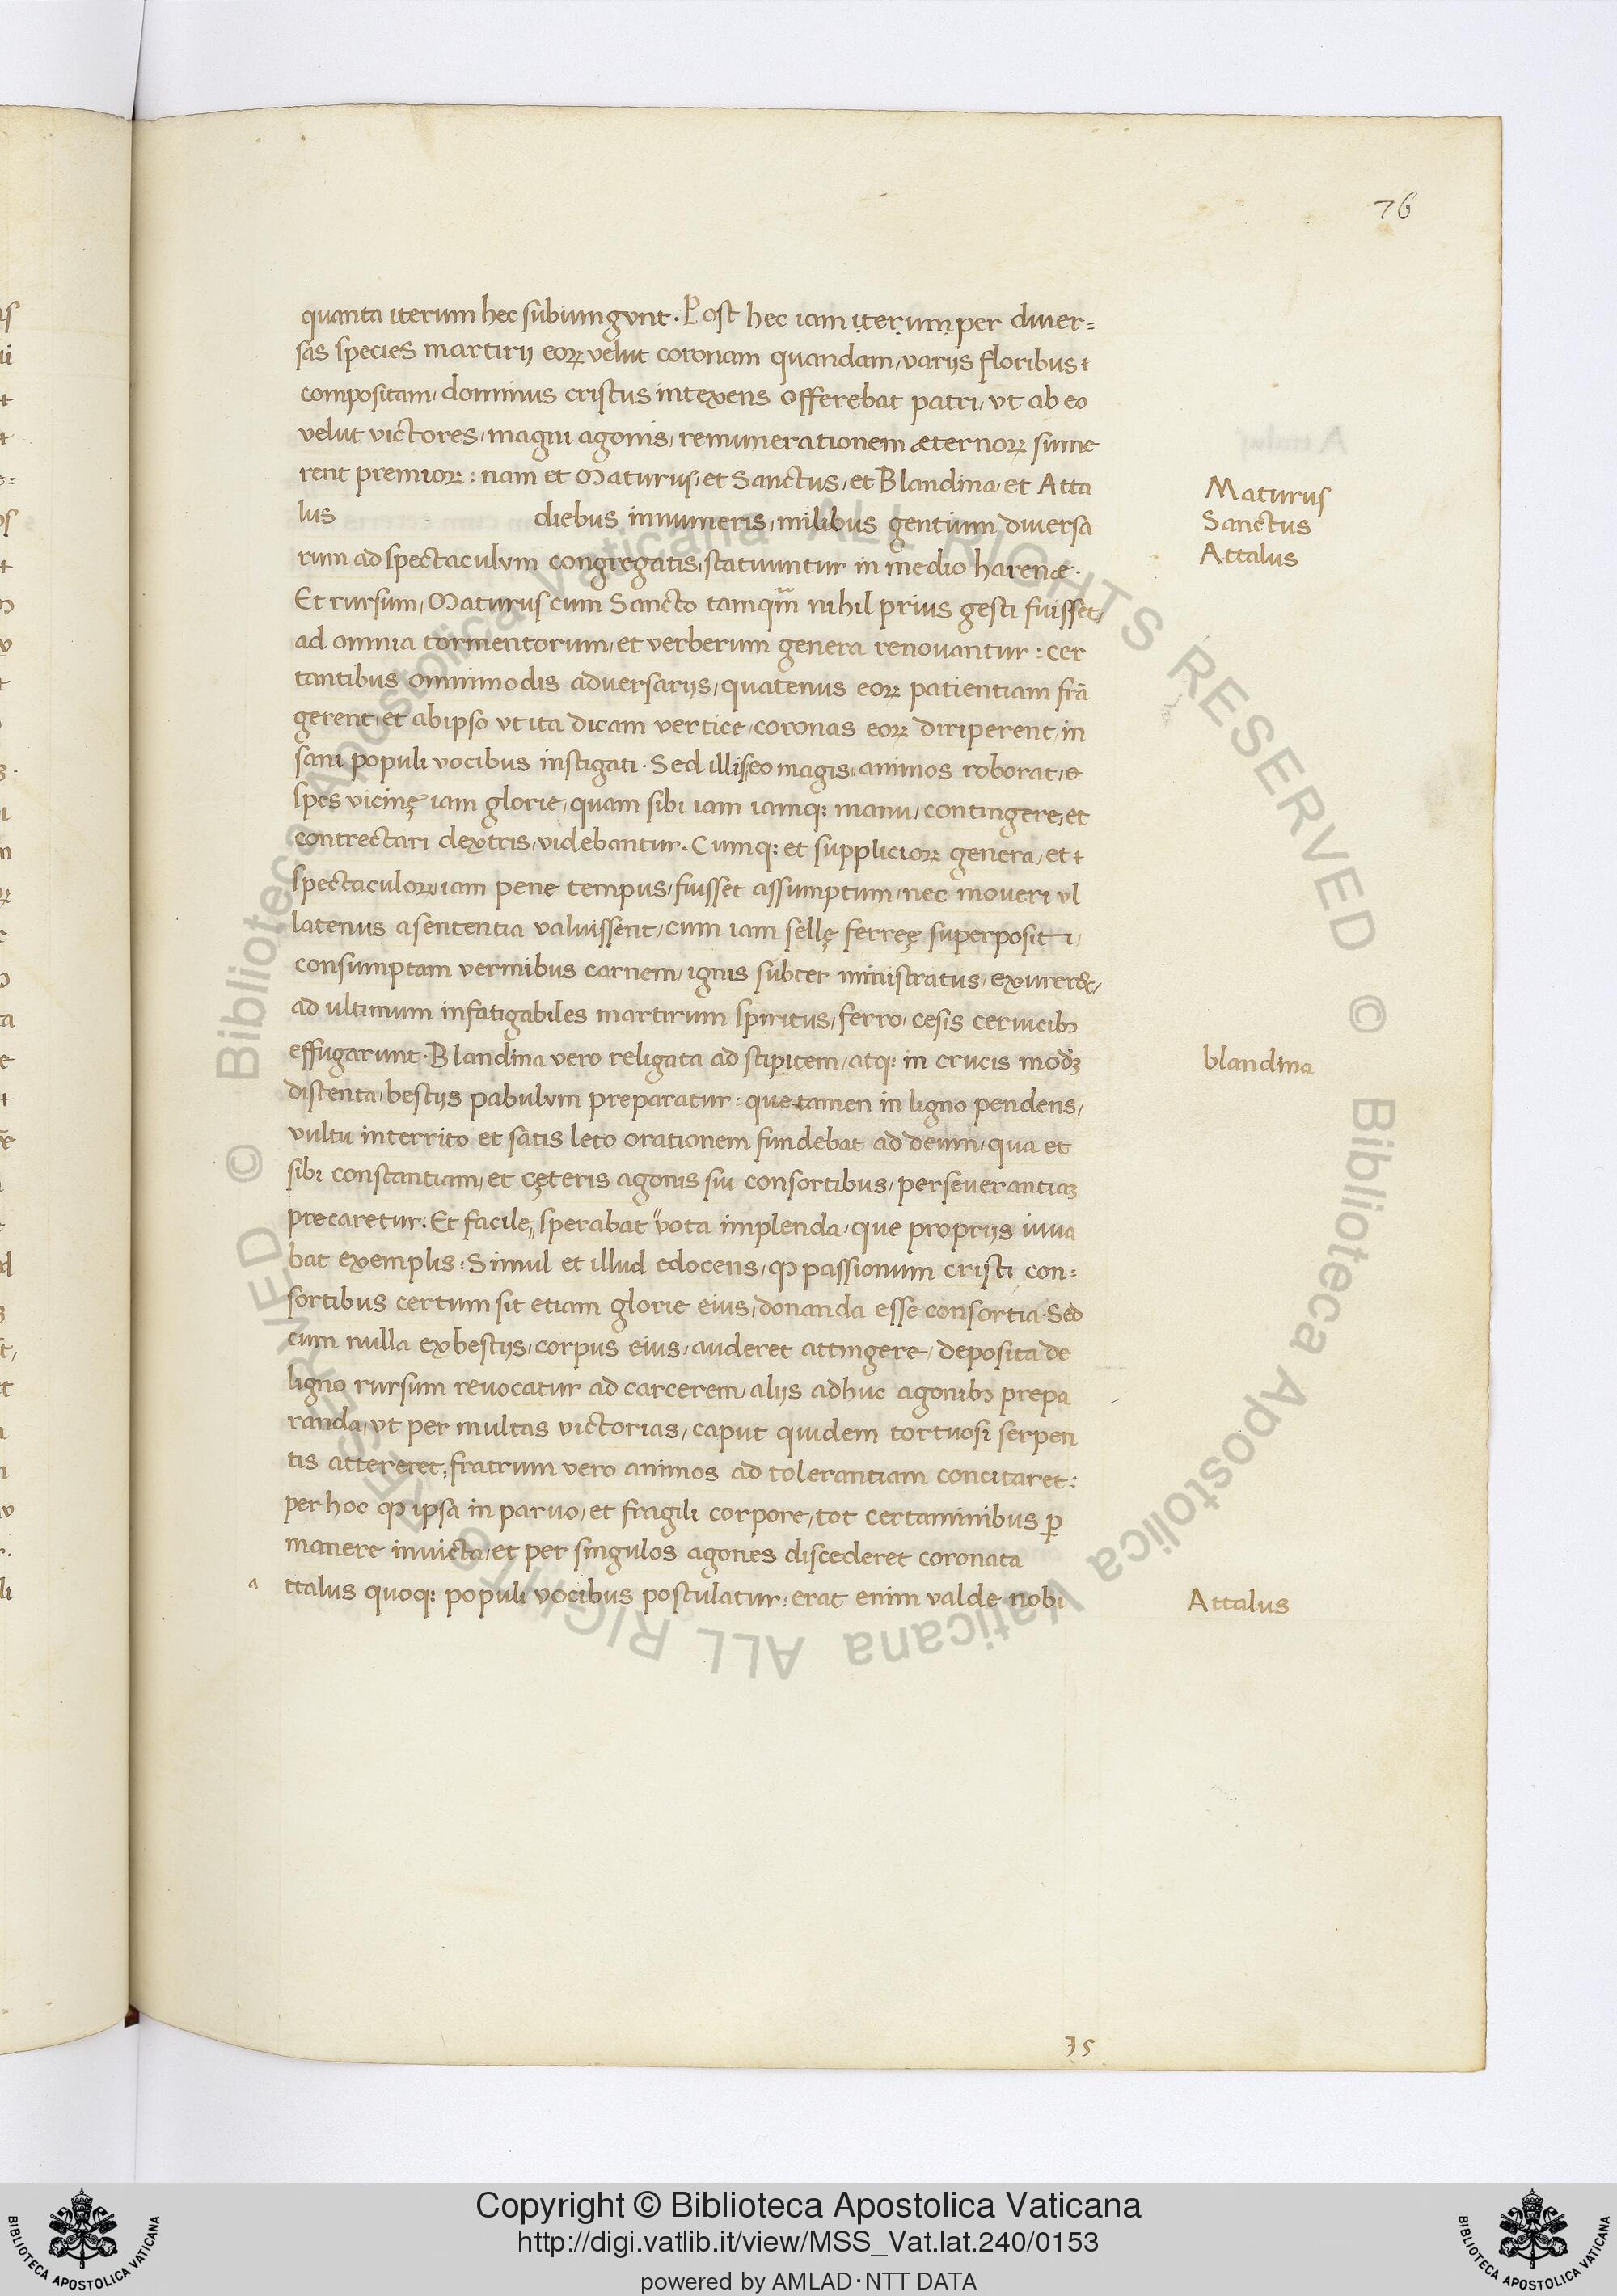 76
quanta iterum hec subiumgunt. Post hec iam iterum per diuer=
sas species martirij eoꝝ velut coronam quandam, varijs floribus
compositam, dominus cristus intexens offerebat patri, vt ab eo
velut victores, magni agonis, remunerationem æternoꝝ sume
rent premioꝝ: nam et Maturus, et Sanctus, et Blandina, et Atta
lus diebus innumeris, milibus gentium diuersa
rum ad spectaculum congregatis, statuuntur in medio harenæ.
Et rursum, Maturus cum Sancto tamqm̄ nihil prius gesti fuisset,
ad omnia tormentorum, et verberum genera renouantur: cer
tantibus omnimodis aduersarijs, quatenus eoꝝ patientiam frā
gerent, et ab ipso vt ita dicam vertice, coronas eoꝝ diriperent, in
sani populi vocibus instigati. Sed illis, eo magis, animos roborat, e
spes vicinę iam glorie, quam sibi iam iamq: manu, contingere, et
contrectari dextris, videbantur. Cumq: et supplicioꝝ genera, et
spectaculoꝝ, iam pene tempus, fuisset assumptum, nec moueri vl
latenus a sententia valuissent, cum iam sellę ferreę superpositi,
consumptam vermibus carnem, ignis subter ministratus, exurer&,
ad ultimum infatigabiles martirum spiritus, ferro, cesis ceruicibꝫ
effugarunt. Blandina vero religata ad stipitem, atq: in crucis modꝫ
distenta, bestijs pabulum preparatur: que tamen in ligno pendens,
vultu interrito et satis leto orationem fundebat ad deum, qua et
sibi constantiam, et cęteris agonis sui consortibus, perseuerantiaꝫ
precaretur: Et facile, sperabat vota implenda, que proprijs iuua
bat exemplis: Simul et illud edocens, ꝙ passionum cristi con=
sortibus certum sit etiam glorie eius, donanda esse consortia. Sed
cum nulla ex bestijs, corpus eius, auderet attingere, deposita de
ligno rursum reuocatur ad carcerem, alijs adhuc agonibꝫ prepa
randa, vt per multas victorias, caput quidem tortuosi serpen
tis attereret: fratrum vero animos ad tolerantiam concitaret:
per hoc ꝙ ipsa in paruo, et fragili corpore, tot certaminibus ꝑ
manere inuicta, et per singulos agones discederet coronata
a ttalus quoq: populi vocibus postulatur: erat enim valde nobi
Maturus
Sanctus
Attalus
blandina
Attalus
75
© Biblioteca Apostolica Vaticana ALL RIGHTS RESERVED © Biblioteca Apostolica Vaticana ALL RIGHTS RESERVED
BIBLIOTECA APOSTOLICA VATICANA
Copyright © Biblioteca Apostolica Vaticana
http://digi.vatlib.it/view/MSS_Vat.lat.240/0153
powered by AMLAD·NTT DATA
BIBLIOTECA APOSTOLICA VATICANA